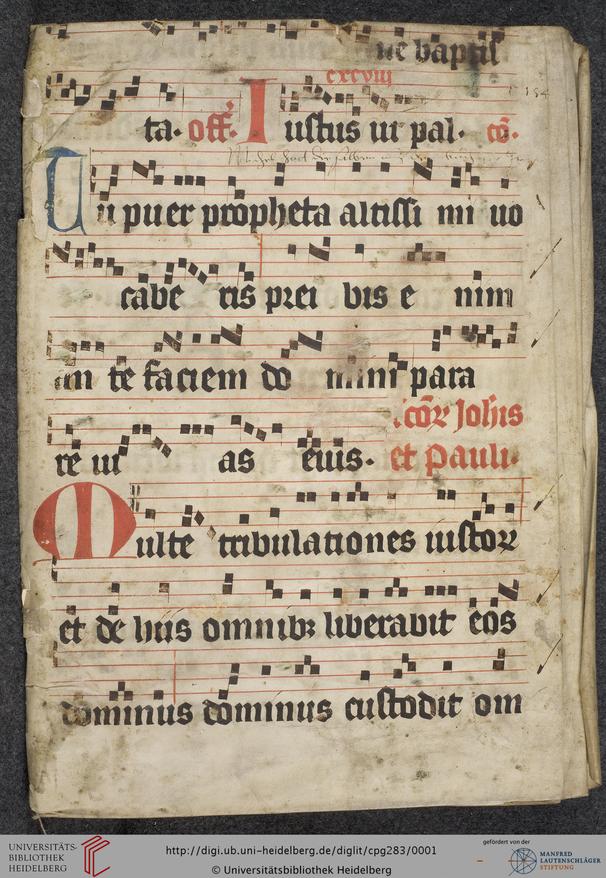 ne baptis
cxcviij
ta. off. Iustus ut pal. co.
Tu puer propheta altissi mi vo
cabe ris prei bis e nim
an te faciem do mini para
.scoꝝ Joh̄is
re ui as eius. et Pauli.
Multe tribulationes iustoꝝ
et de hiis omnibꝫ liberavit eos
dominus dominus custodit om
UNIVERSITÄTS-
BIBLIOTHEK
HEIDELBERG
http://digi.ub.uni-heidelberg.de/diglit/cpg283/0001
© Universitätsbibliothek Heidelberg
gefördert von der
MANFRED
LAUTENSCHLÄGER
STIFTUNG